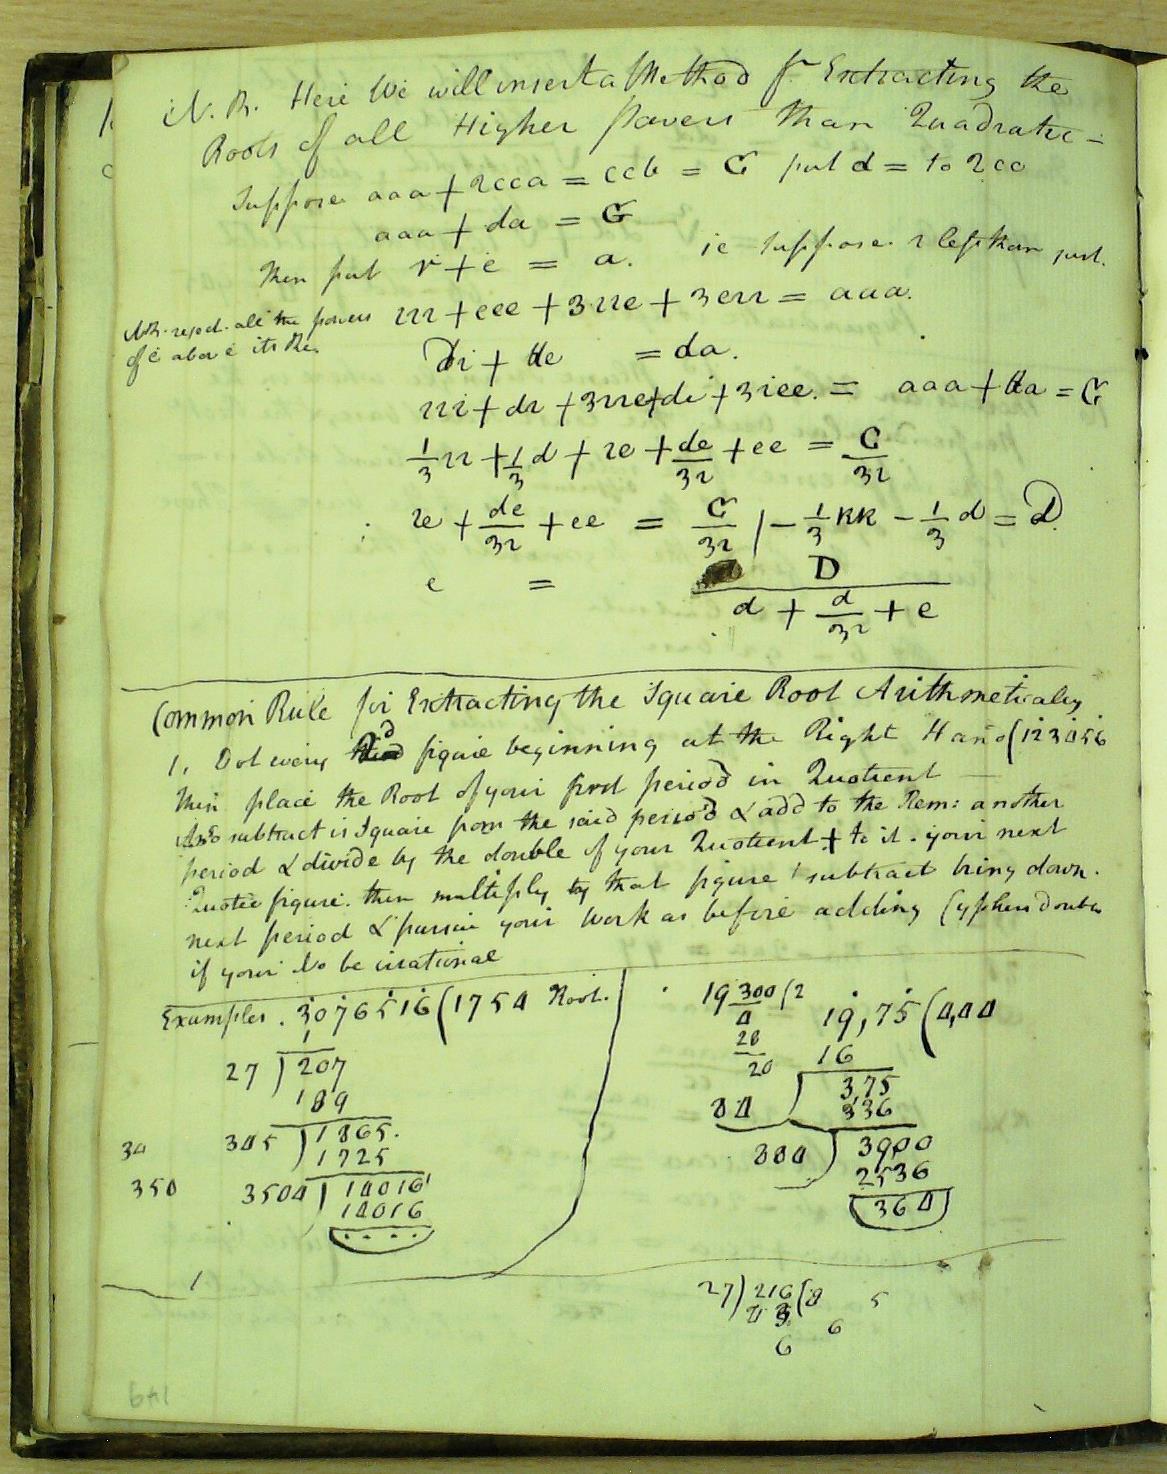 N.B. Here We will insert a Method for Extracting the
Roots of all Higher Powers than Quadratic =
Suppose aaa + 2cca = ccb = G put d = to 2cc
aaa + da = G
Then put r + e = a. ie Suppose r less than just.
rrr + eee + 3rre + 3err = aaa.
NB. reject all the powers
of e above its
dr + de = da.
rrr + dr + 3rre + de + 3ree. = aaa + da = G
1/3 rr + 1/3 d + re + de/3r + ee = G/3r
re + de/3r + ee = G/3r | - 1/3 RR - 1/3 d = D
e = D / d + d/3r + e
Common Rule for Extracting the Square Root Arithmetically
1. Dot every 2d figure beginning at the Right Hand (123456
then place the Root of your first period in Quotient
And subtract is Square from the said period & add to the Rem: another
period & divide by the double of your Quotient + to it . your next
Quotie figure. then multiply by that figure subtract bring down.
next period & pursue your Work as before adding Cyphers double
if your No be irrational
Examples . 3076516 (1754 Root.
1
27 ) 207
189
34 345 ) 1865.
1725
350 3504 ) 14016
14016
. . . .
19 300 (2
4
20
20
19,75 (4,44
16
84 ) 3,75
336
884 ) 3900
2536
364
1
27) 216 (8 5
43
6 6
641